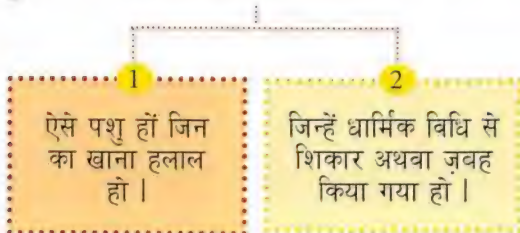 1
ऐसे पशु हों जिन
का खाना हलाल
हो |
2
जिन्हें धार्मिक विधि से
शिकार अथवा ज़वह
किया गया हो |